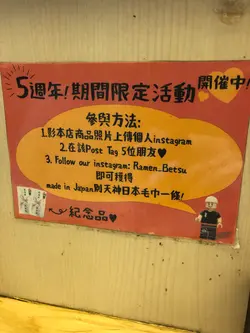 5週年!期間限定活動
開催中!
參與方法:
1.影本店商品照片上傳個人instagram
2.在該Post Tag 5位朋友♥
3. Follow our instagram: Ramen_Betsu
即可獲得
made in Japan 別天神日本毛巾一條!
紀念品♥